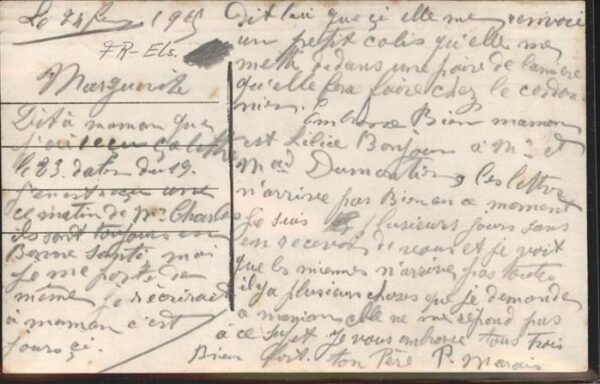 Le 24 1915
FR-Els.
Marguerite
Dit à maman que
j'ai reçu ça lettre
le 23. daten du 19.
j'en ai reçu une
ce matin de Mr Charles
ils sont toujours en
Bonne Santé, moi
je me porte de
même je récrirait
à maman c'est
jours çi.
Dit lui que çi elle me renvoie
un petit colis qu'elle me
mette dedans une paire de lanière
qu'elle fera faire chez le cordon
nier. Embrasse Bien maman
est Lilice Bonjour à Mr et
Mad Dumontier, les lettres
n'arrive pas Bien en ce moment
je suis plusieurs jours sans
en recevoir de vous et je voit
que les miennes n'arrive pas toutes
il y a plusieurs choses que je demande
a maman elle ne me répond pas
à ce sujet je vous embrasse tous trois
Bien fort. ton Père P. Marais